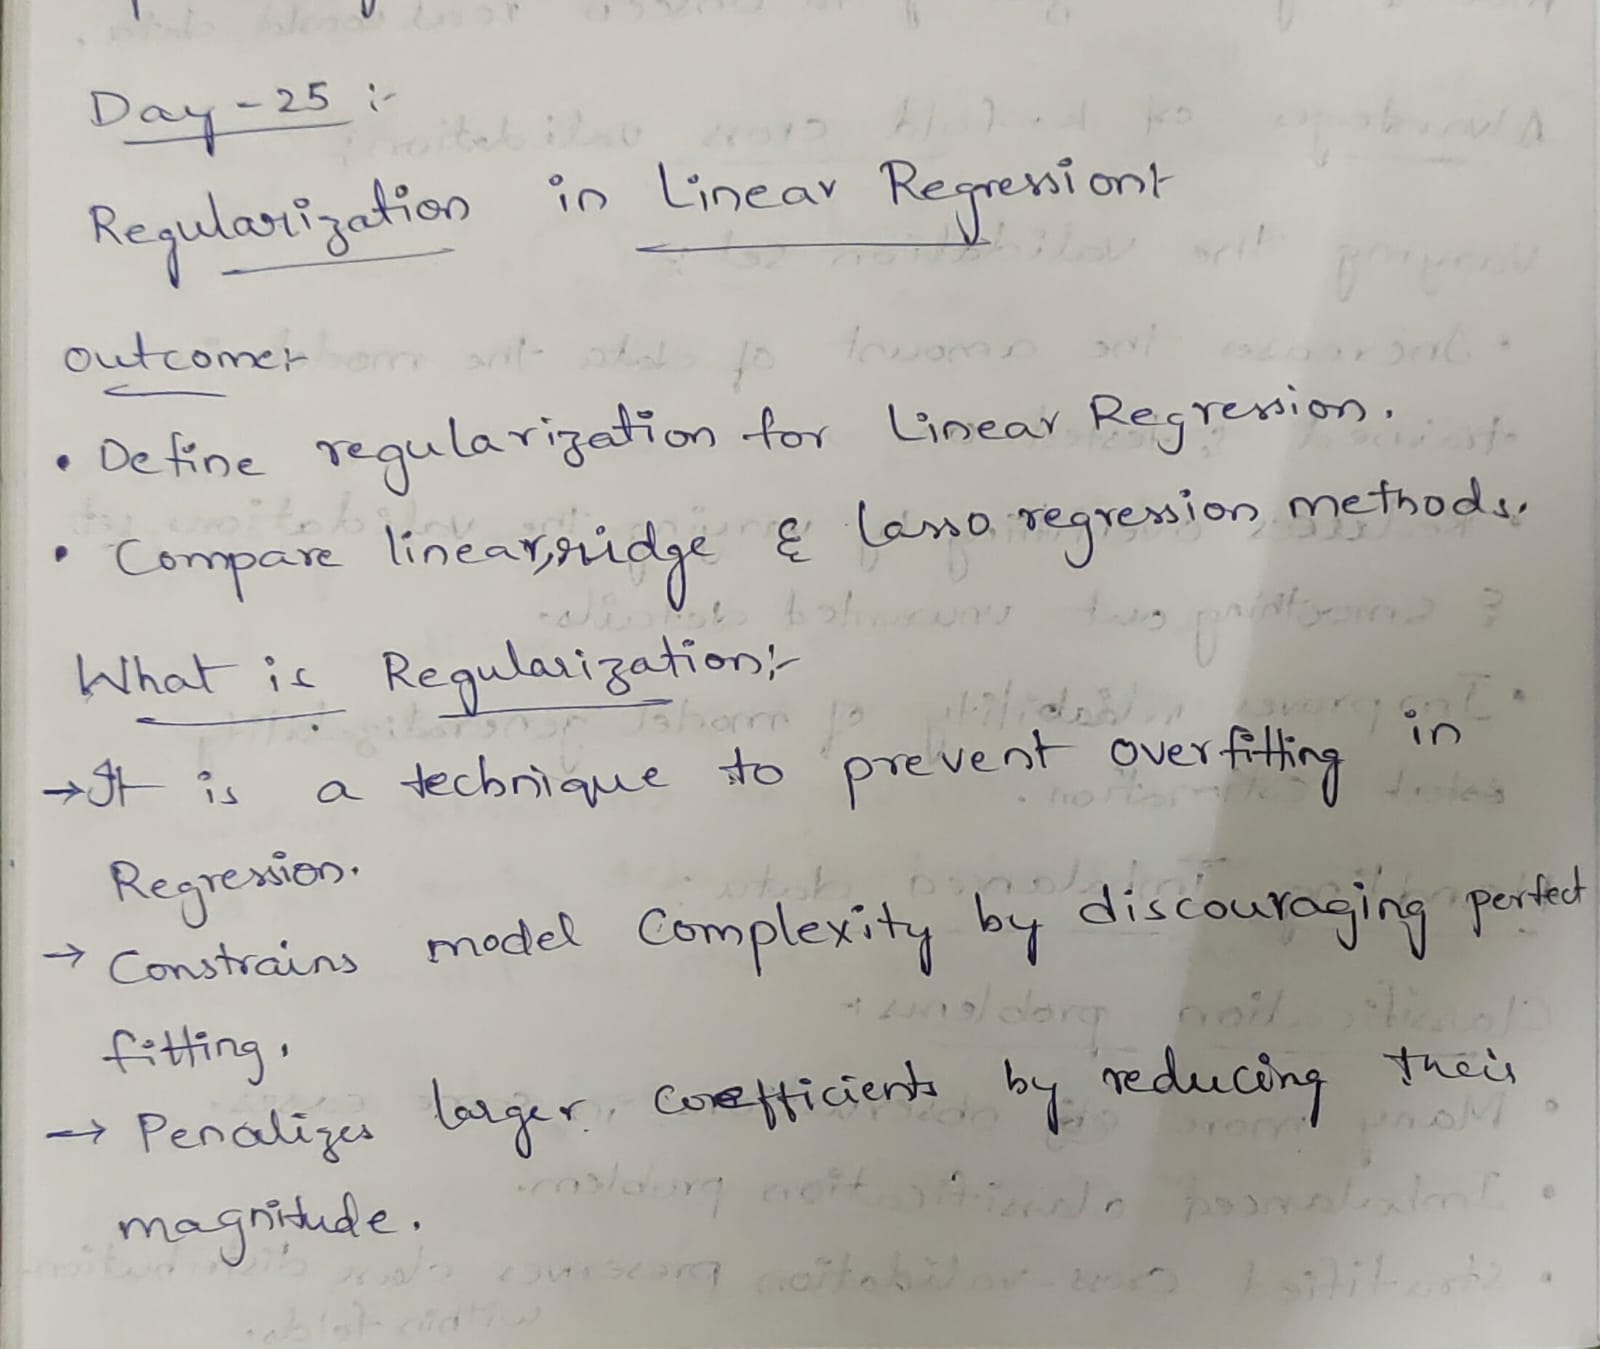 Day-25 :-
Regularization in Linear Regression:-
outcome:-
• Define regularization for Linear Regression.
• Compare linear, ridge & lasso regression methods.
What is Regularization:-
→ It is a technique to prevent overfitting in
Regression.
→ Constrains model Complexity by discouraging perfect
fitting.
→ Penalizes larger coefficients by reducing their
magnitude.